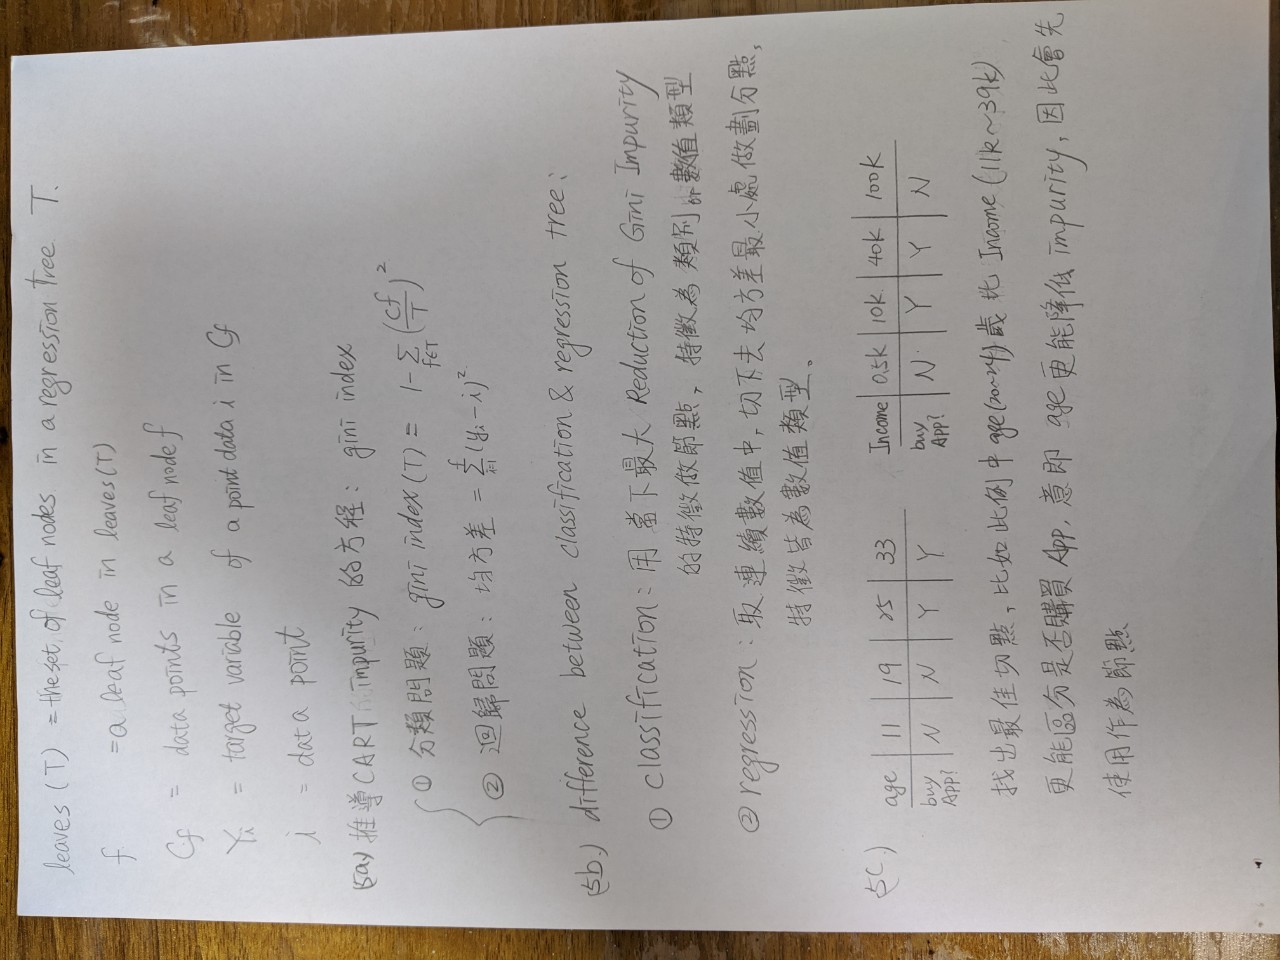 leaves (T) = the set of leaf nodes in a regression tree T.
f = a leaf node in leaves(T)
Cf = data points in a leaf node f
Yi = target variable of a point data i in Cf
i = data point
5a) 推導CART impurity 的方程: gini index
① 分類問題: gini index (T) = 1-∑f∈T (Cf/T)²
② 迴歸問題: 均方差 = ∑i=1^f (yi - i)²
5b.) difference between classification & regression tree:
① classification: 用當下最大 Reduction of Gini Impurity
的特徵做節點, 特徵為類別 or 數值類型
② regression: 取連續數值中, 切下去均方差最小處做劃分點,
特徵皆為數值類型。
5C.) age 11 19 25 33 Income 0.5k 10k 40k 100k
buy App? N N Y Y buy App? N Y Y N
找出最佳切點, 比如此例中 age(20~24)歲 比 Income (11k~39k)
更能區分是否購買 App, 意即 age 更能降低 impurity, 因此會先
使用作為節點